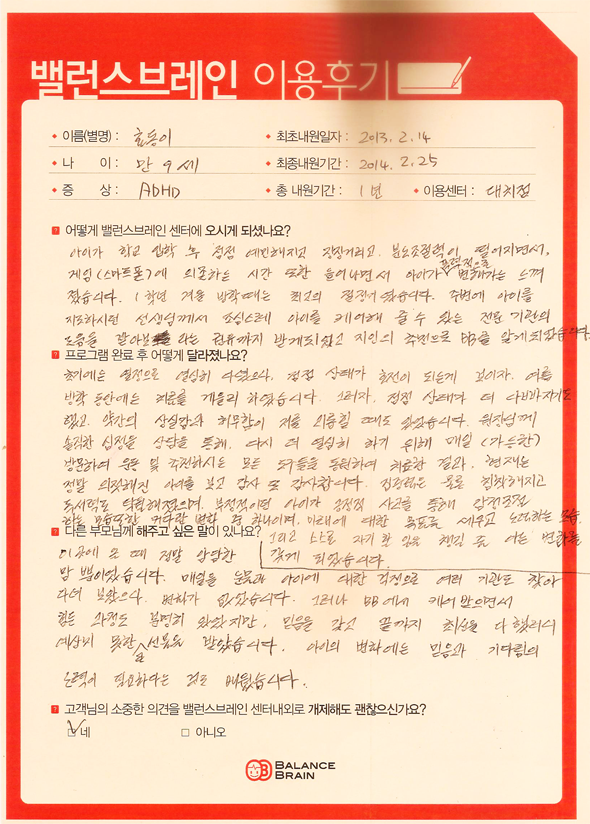 밸런스브레인 이용후기
이름(별명) : 효둥이
최초내원일자 : 2013. 2. 14
나 이 : 만 9세
최종내원기간 : 2014. 2. 25
증 상 : ADHD
총 내원기간 : 1년
이용센터 : 대치점
어떻게 밸런스브레인 센터에 오시게 되셨나요?
아이가 학교 입학 후 점점 예민해지고 긴장하고, 분노조절력이 떨어지면서,
게임(스마트폰)에 의존하는 시간 또한 늘어나면서 아이가 폭력적으로 변해가는 느껴
졌습니다. 1학년 겨울 방학때는 최고의 절정이었습니다. 주변에 아이를
지도하시던 선생님께서 조심스레 아이를 케어해 줄 수 있는 전문 기관의
도움을 받아보라는 권유까지 받게되었고 지인의 추천으로 BB를 알게되었습니다.
프로그램 완료 후 어떻게 달라졌나요?
초기에는 열정으로 열심히 다녔으나, 점점 상태가 호전이 되는게 보이자, 여름
방학 동안에는 치료를 게을리 하였습니다. 그러자, 점점 상태가 더 나빠지기도
했고, 약간의 상실감과 허무함이 저를 괴롭힐 때도 있었습니다. 원장님께
솔직한 심정을 상담을 통해, 다시 더 열심히 하기 위해 매일(가능한)
방문하여 운동 및 추천하시는 모든 도구들을 동원하여 치료한 결과, 현재는
정말 의젓해진 아이를 보고 감사 또 감사합니다. 집중력은 물론 침착해지고
독서력도 탁월해졌으며, 부정적이던 아이가 긍정적 사고를 통해 감정조절
하는 모습또한 커다란 변화 중 하나이며, 미래에 대한 목표를 세우고 노력하는 모습.
그리고 스스로 자기 할 일을 챙길 줄 아는 변화를
갖게 되었습니다.
다른 부모님께 해주고 싶은 말이 있나요?
이곳에 올 때 정말 답답한
맘 뿐이었습니다. 매일을 눈물과 아이에 대한 걱정으로 여러 기관도 찾아
다녀 보았으나, 변화가 없었습니다. 그러나 BB에서 케어 받으면서
힘든 과정도 분명히 있었지만, 믿음을 갖고 끝까지 최선을 다 했더니
예상치 못한 선물을 받았습니다. 아이의 변화에는 믿음과 기다림의
노력이 필요하다는 것도 배웠습니다.
고객님의 소중한 의견을 밸런스브레인 센터내외로 개제해도 괜찮으신가요?
네
아니오
BALANCE
BRAIN